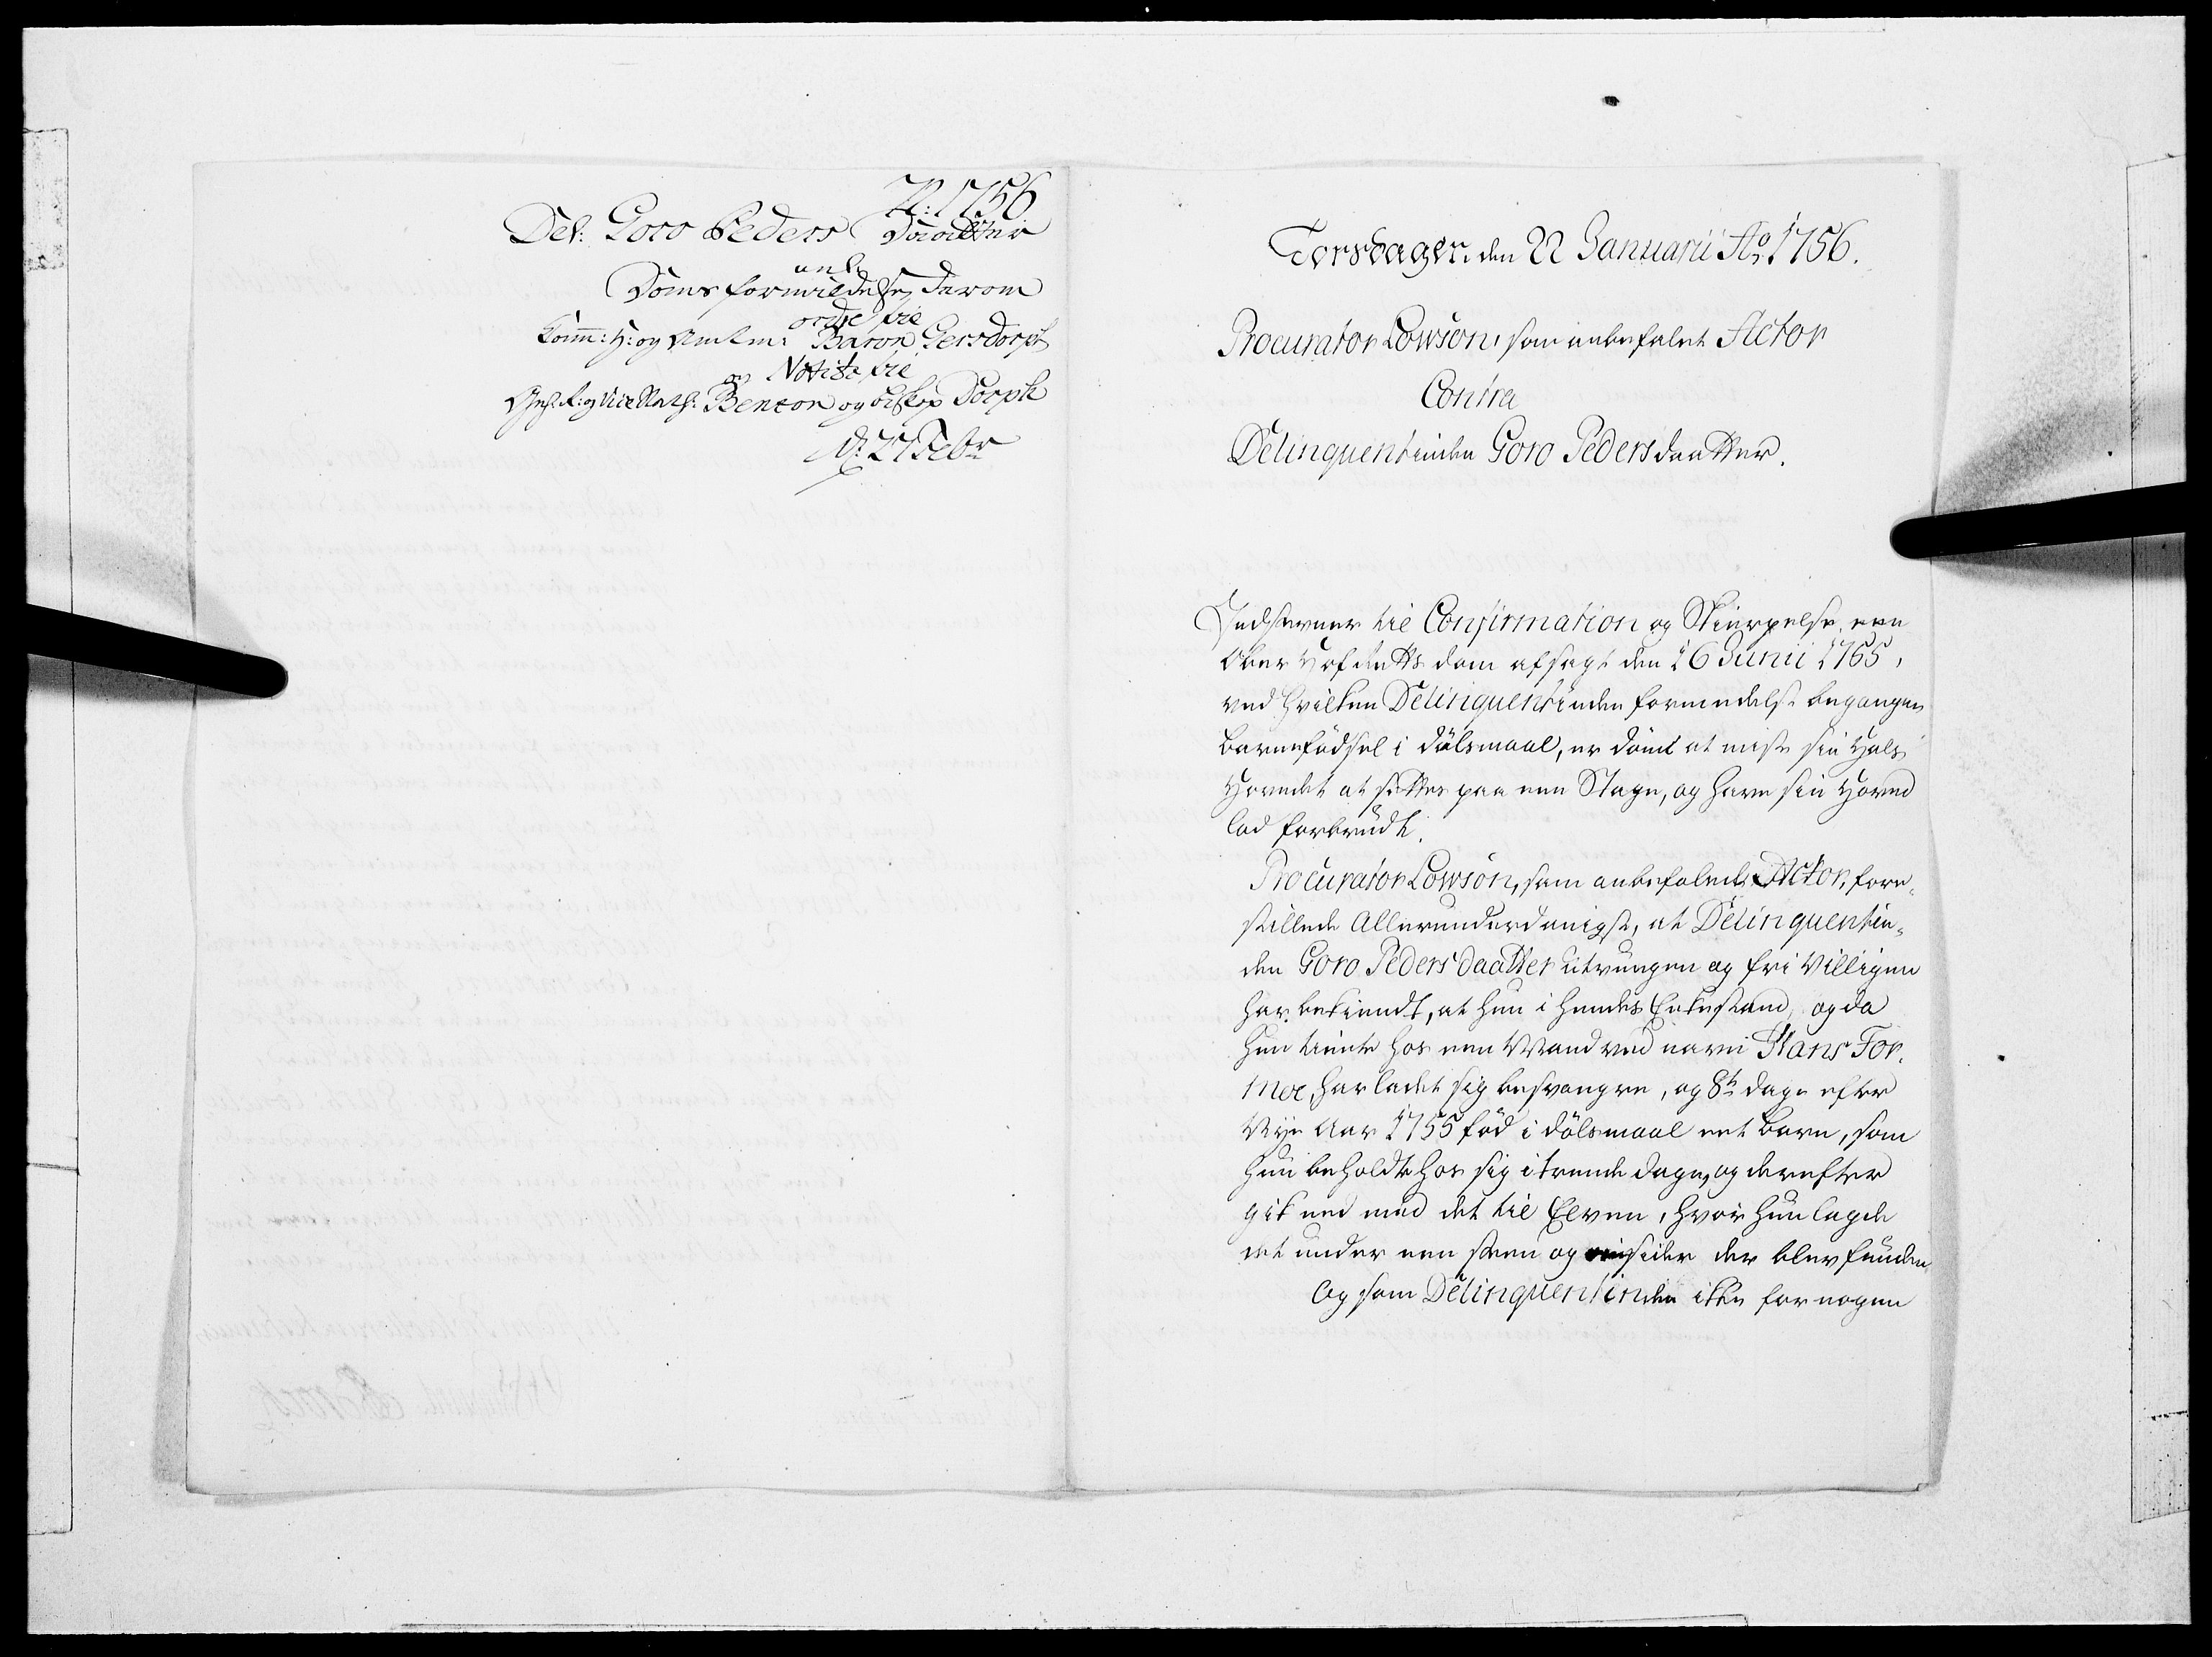 N: 1756
Del: Goro Peders Daatter
anl.
Doms formildelse, derom
ordre til
Comm: H: og Amtm: Baron Gersdorph
og Notits til
Geh: R: og Vice Stath: Bentzon og biskop Dorph
d: 27 Febr
Torsdagen den 22 Januarii Ao 1756.
Procurator Lowson, som anbefalet Actor
Contra
Delinquentinden Goro Pedersdaatter.
Indstevner til Confirmation og Skierpelse, een
Ober Hofrætts dom afsagt den 16 Junii 1765,
ved hvilken Delinquentinden formedelst begangen
barnefødsel i dølsmaal, er dømt at miste sin Hals
Hovedet at settes paa een Stage, og have sin Hoved
lod forbrudt.
Procurator Lowson, som anbefalede Actor, fore-
stillede Allerunderdanigst, at Delinquentin-
den Goro Pedersdaatter utvungen og fri Villigen
har bekiendt, at hun i hendes Enkestand, og da
hun tiente hos een Mand ved navn Hans For-
moe, har ladet sig besvangre, og 8te dage efter
Nye Aar 1755 fød i dølsmaal eet barn, som
hun beholdte hos sig i trende dage, og derefter
gik ned med det til Elven, hvor hun lagde
det under een steen og siden der blev funden
Og som Delinquentinden ikke for nogen